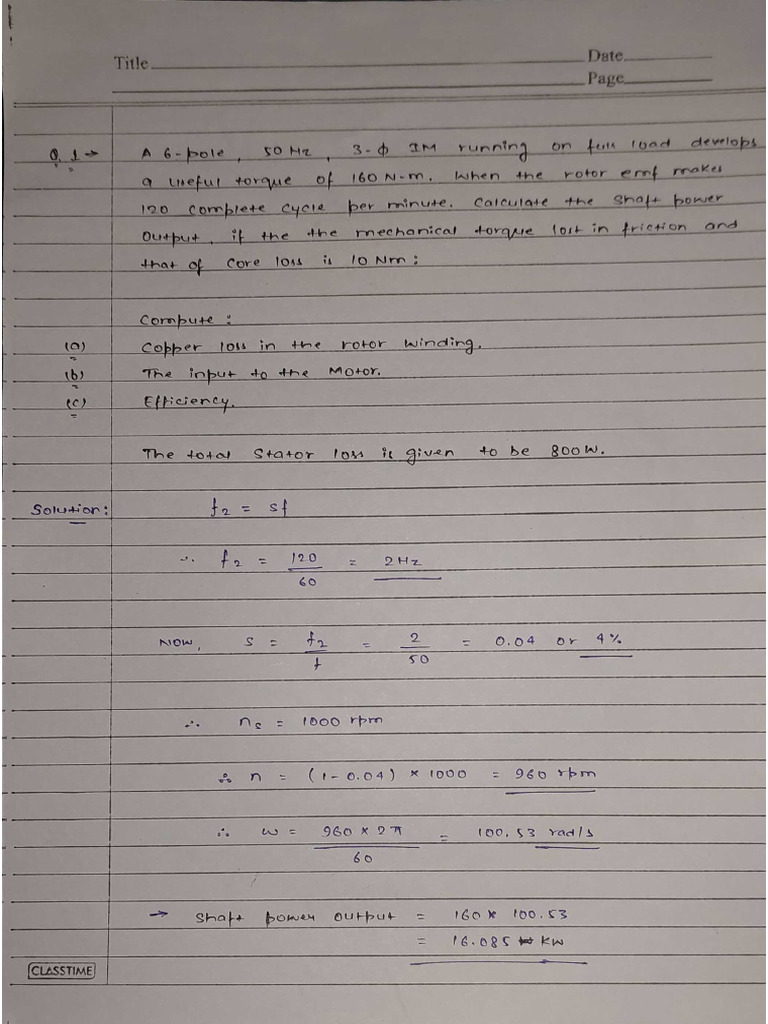 Title Date
Page
Q.1→ A 6-pole, 50 Hz, 3-ϕ IM running on full load develops
a useful torque of 160 N-m. When the rotor emf makes
120 complete cycle per minute. Calculate the shaft power
output, if the the mechanical torque lost in friction and
that of core loss is 10 Nm:
Compute:
(a) Copper loss in the rotor winding.
(b) The input to the Motor.
(c) Efficiency.
The total stator loss is given to be 800W.
Solution: f₂ = sf
∴ f₂ = 120/60 = 2Hz
NOW, s = f₂/f = 2/50 = 0.04 or 4%
∴ nₛ = 1000 rpm
∴ n = (1-0.04) × 1000 = 960 rpm
∴ ω = 960 × 2π/60 = 100.53 rad/s
→ Shaft power output = 160 × 100.53
= 16.085 KW
CLASSTIME